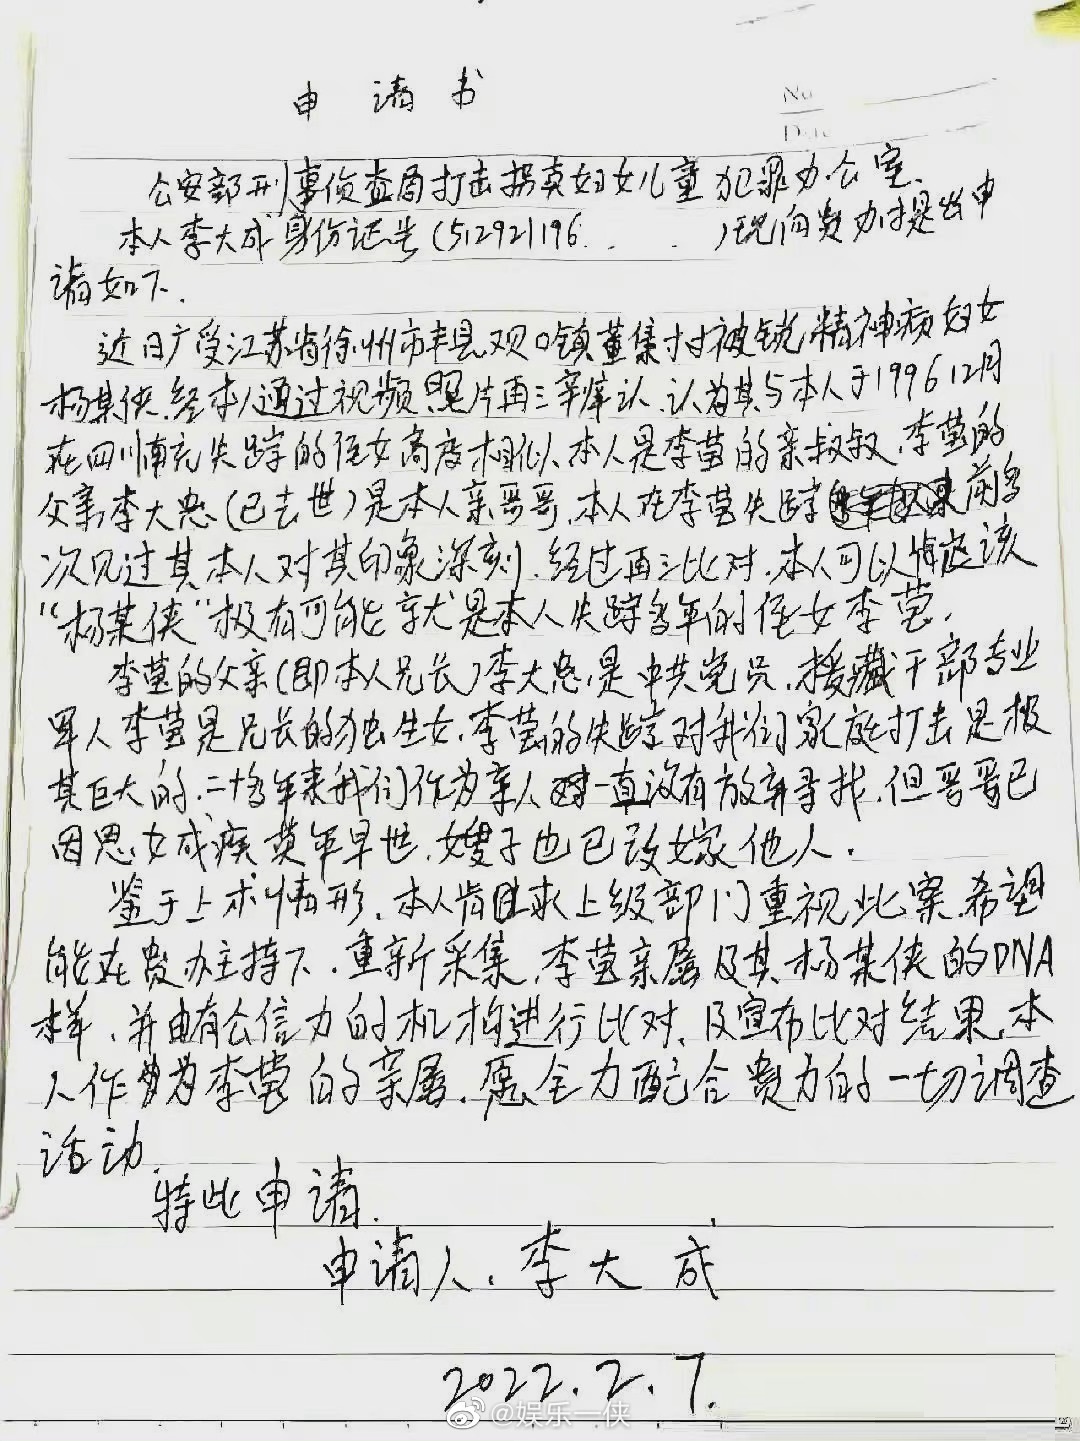 申请书
No
Date
公安部刑事侦查局打击拐卖妇女儿童犯罪办公室.
本人李大成身份证号(512921196. . . .),现向贵办提出申
请如下.
近日广受江苏省徐州市丰县欢口镇董集村被锁精神病妇女
杨某侠.经本人通过视频照片再三辨认.认为其与本人于1996 12月
在四川南充失踪的侄女高度相似.本人是李莹的亲叔叔.李莹的
父亲李大忠(已去世)是本人亲哥哥.本人在李莹失踪前多
次见过其本人对其印象深刻.经过再三比对.本人可以确定该
“杨某侠”极有可能就是本人失踪多年的侄女李莹.
李莹的父亲(即本人兄长)李大忠是中共党员.援藏干部专业
军人李莹是兄长的独生女.李莹的失踪对我们家庭打击是极
其巨大的.二十多年来我们作为亲人一直没有放弃寻找.但哥哥已
因思女成疾英年早世.嫂子也已改嫁他人.
鉴于上术情形.本人肯求上级部门重视此案.希望
能在贵办主持下.重新采集.李莹亲属及其杨某侠的DNA
样.并由有公信力的机构进行比对.及宣布比对结果.本
人作为李莹的亲属.愿全力配合贵方的一切调查
活动.
特此申请.
申请人.李大成
2022.2.7.
@娱乐一侠